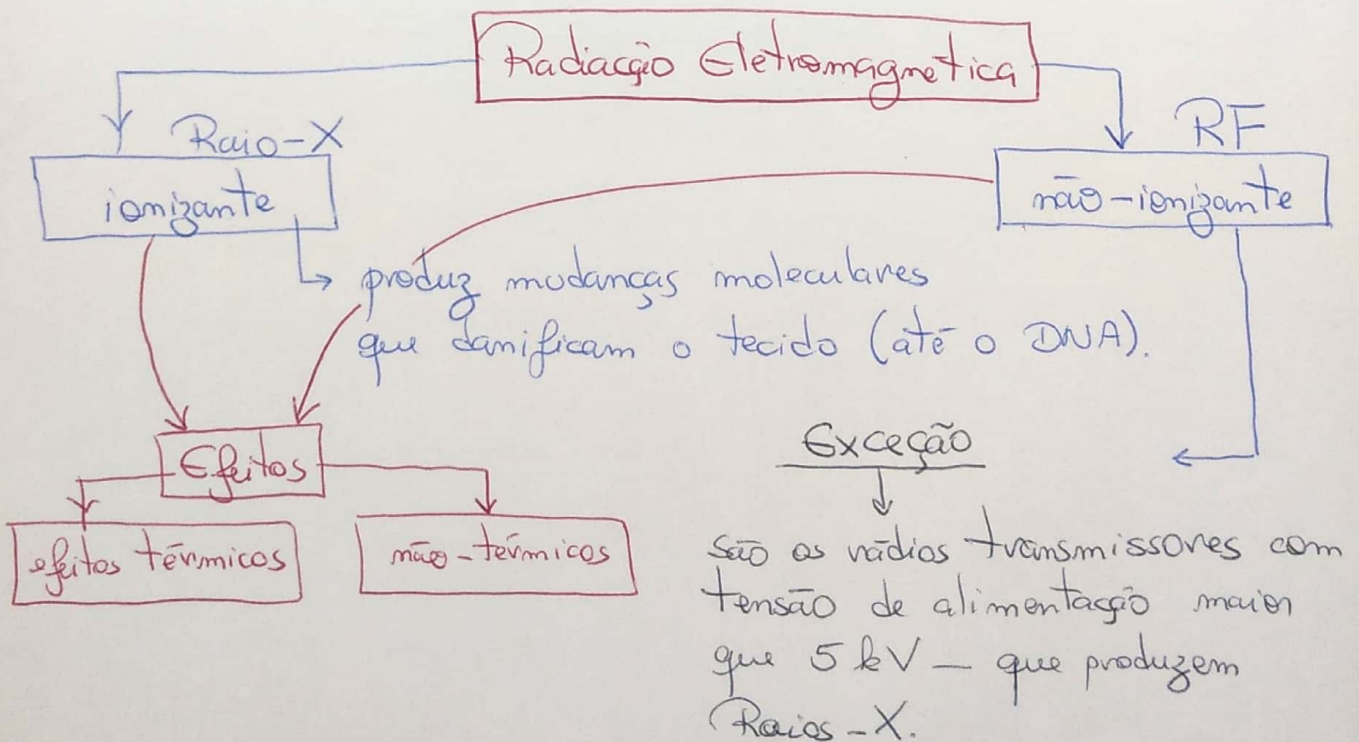 Radiação Eletromagnética
Raio-X
ionizante
RF
não-ionizante
produz mudanças moleculares
que danificam o tecido (até o DNA).
Efeitos
efeitos térmicos
não-térmicos
Exceção
são os rádios transmissores com
tensão de alimentação maior
que 5 kV — que produzem
Raios-X.